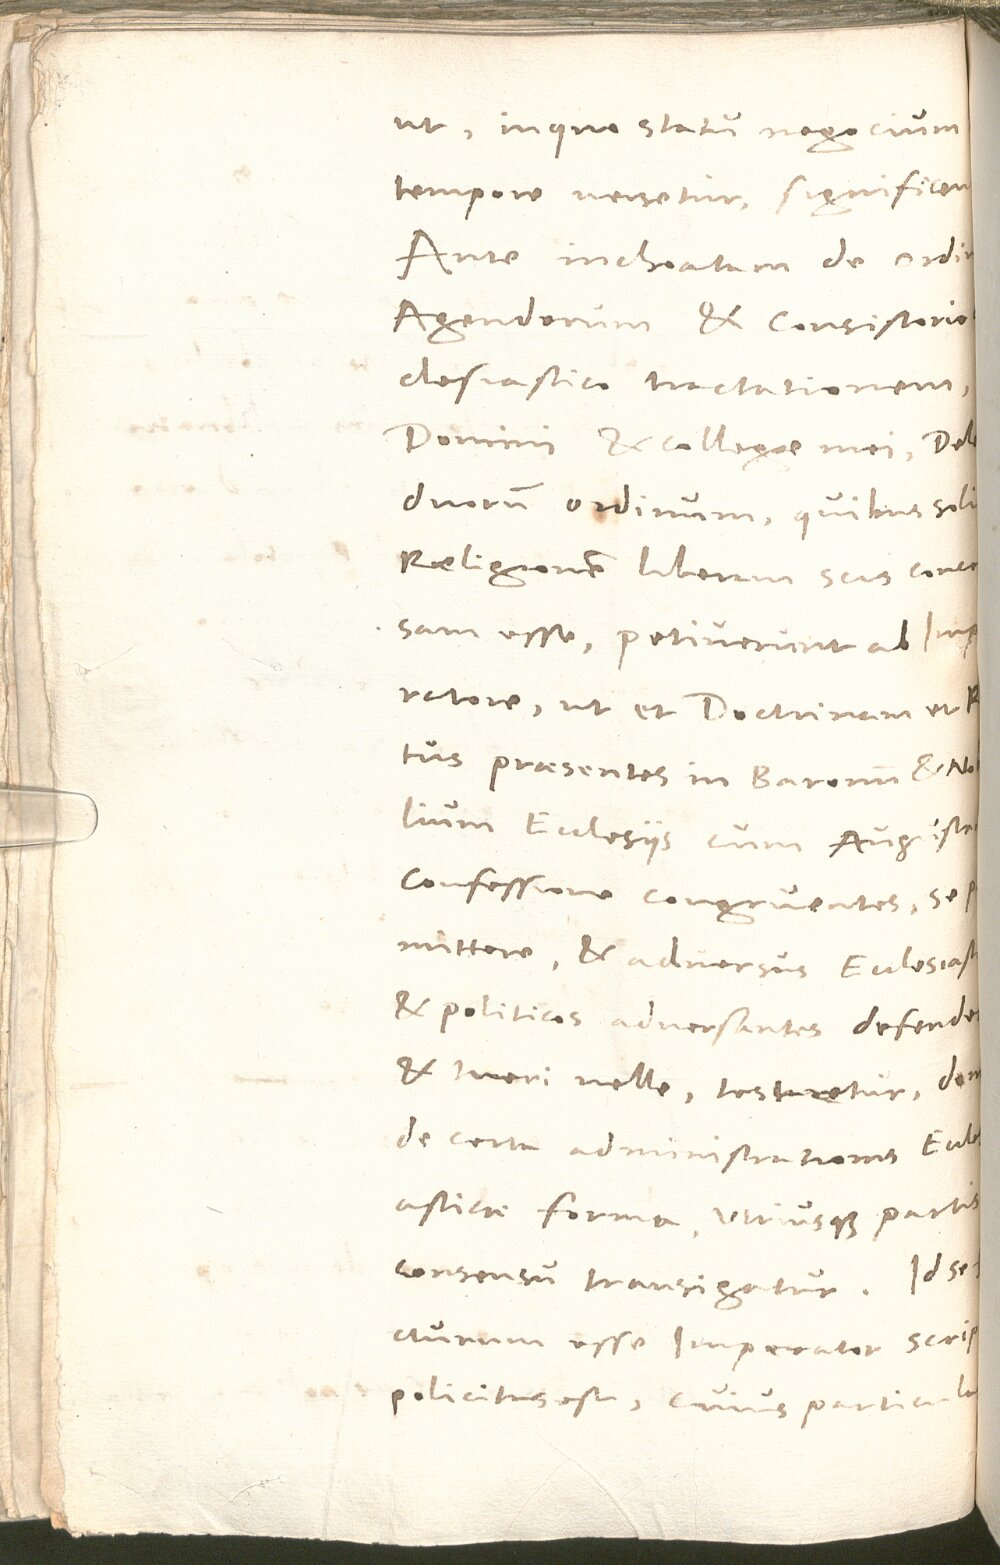 ut, in quo statū negocium
tempore uersetur, significen
Ante inchoatam de ordin
Agendorum & Consistorio
clesiastico tractationem,
Domini & collegae mei, Dele
duorū ordinum, quibus soli
Religionē liberam scis conce
sam esse, petiuerunt ab Imp
ratore, ut et Doctrinam et R
tus praesentes in Baronū & Nob
lium Ecclesijs cum Augusta
Confessione congruentes, se p
mittere, & aduersus Ecclesiast
& politicos aduersantes defende
& tueri uelle, testaretur,
de certa administrationis Eccles
asticae forma, utriusqꝫ partis
consensu transigatur. Id se
cturum esse Imperator scrip
policitus est, cuius particula